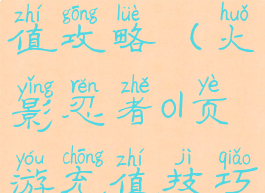 zhí gōng lüè huǒ
值攻略（火
yǐng rěn zhě yè
影忍者ol页
yóu chōng zhí jì qiǎo
游充值技巧